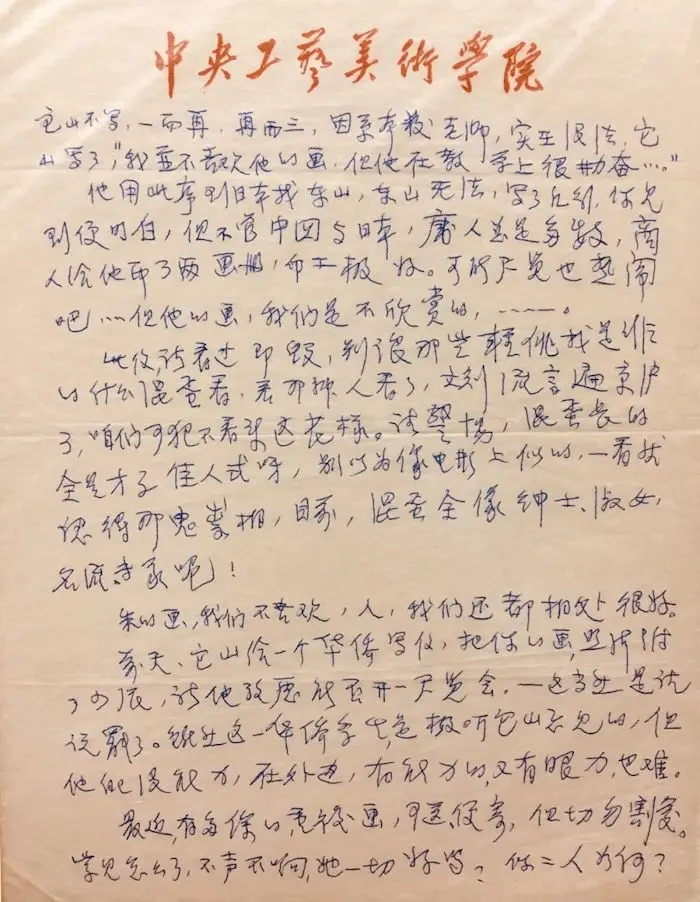 中央工艺美術学院
它山不写,一而再,再而三,因系本校老师,实在没法,它
山写了,"我并不喜欢他的画,但他在教学上很勤奋……"
他用此序到日本找东山,东山无法,写了几引,你见
到便明白,但不管中国与日本,庸人总是多数,商
人给他印了两画册,印工极好。可能展览也热闹
吧……但他的画,我们是不欣赏的,……。
此信,请看过即毁,别让那些轻佻找是非
的什么混蛋看,若那种人看了,立刻流言遍京沪
了,咱们可犯不着来这花样。请警惕,混蛋长的
全是才子佳人式呀,别以为像电影上似的,一看就
认得那鬼祟相,目前,混蛋全像绅士、淑女,
名流专家呢!
朱的画,我们不喜欢,人,我们还都相处很好。
前天、它山给一个华侨写信,把你的画,照片附
了几张,请他考虑能否开一展览会。——这当然是说
说罢了。虽然这一华侨学生,是极听它山意见的,但
他能没能力,在外边,有能力的,又有眼力,也难。
最近,有多余的重复画,可送、便寄,但切勿割爱。
学见怎么了,不声不响,她一切好吗?你二人如何?